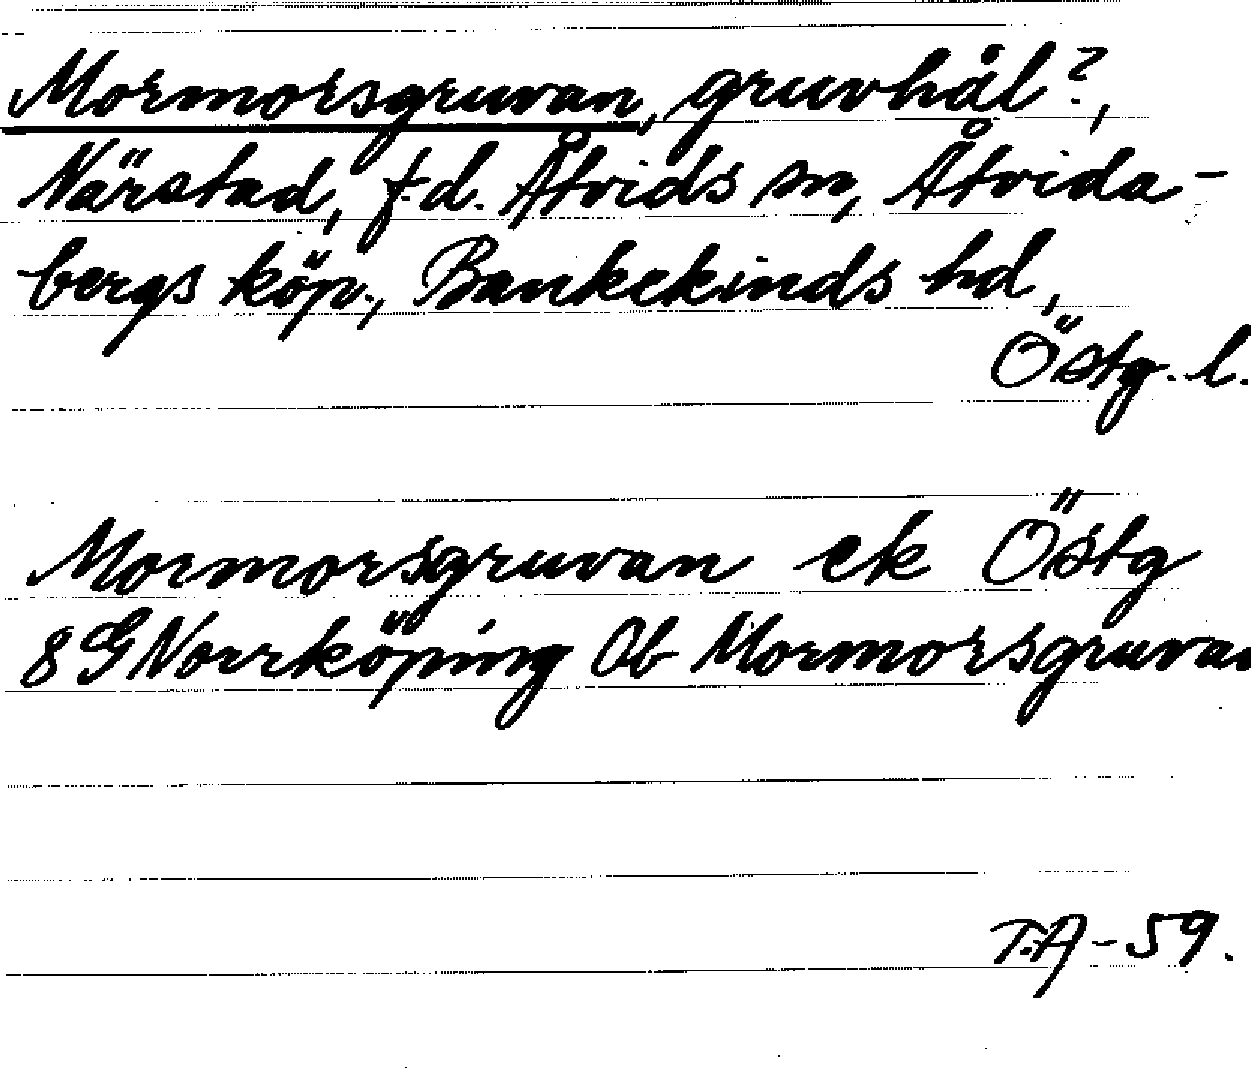 Mormorsgruvan, gruvhål?,
Närstad, f.d. Åtvids sn, Åtvida-
bergs köp., Bankekinds hd,
Östg. l.
Mormorsgruvan ek Östg
8G Norrköping Ob Mormorsgruvan
T.A-59.